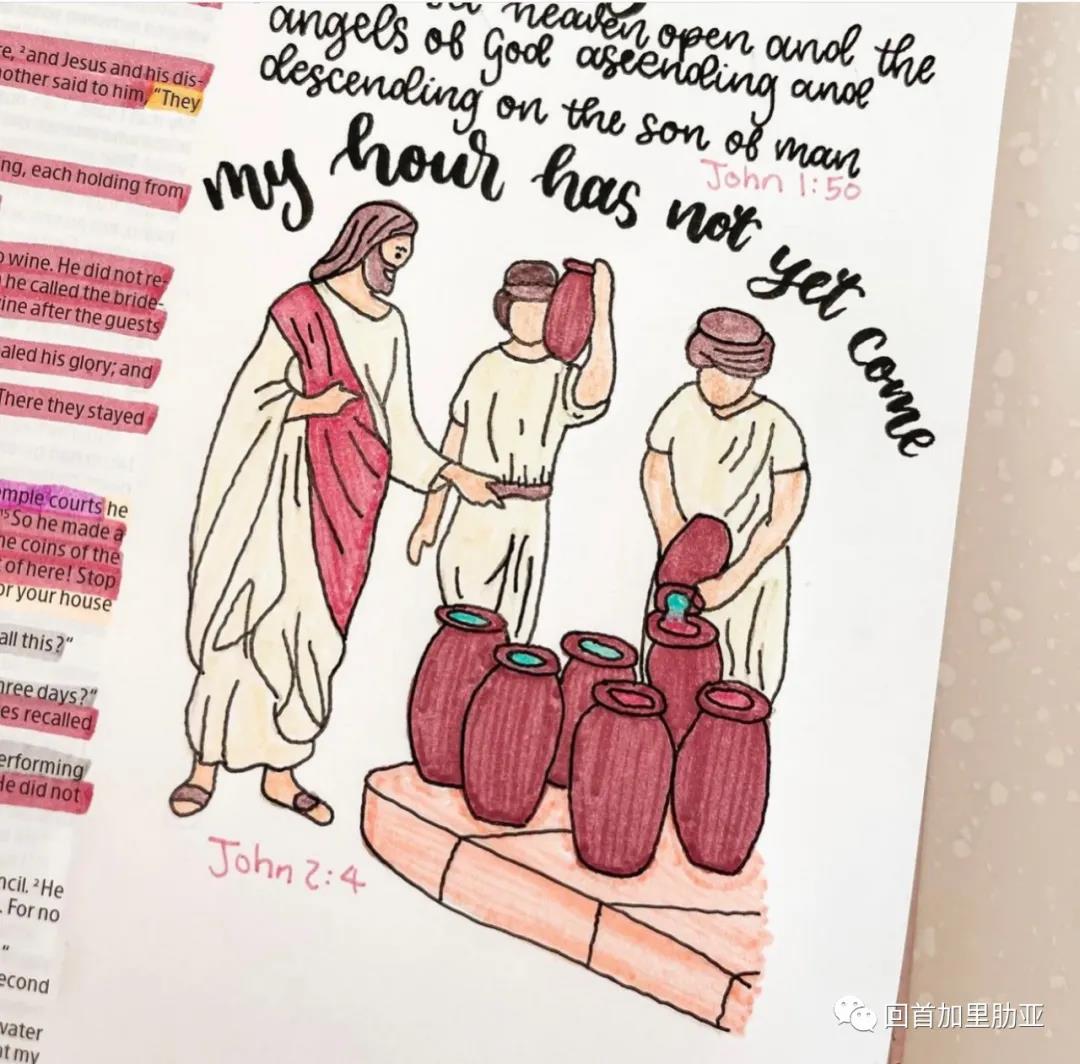 e, ²and Jesus and his dis-
other said to him, "They
ng, each holding from
wine. He did not re-
he called the bride-
ine after the guests
ealed his glory; and
There they stayed
emple courts he
¹⁵So he made a
he coins of the
of here! Stop
or your house
all this?"
hree days?"
es recalled
erforming
He did not
ncil. ²He
. For no
"
econd
water
at my
heaven open and the
angels of God ascending and
descending on the son of man
John 1:50
my hour has not yet come
John 2:4
回首加里肋亚